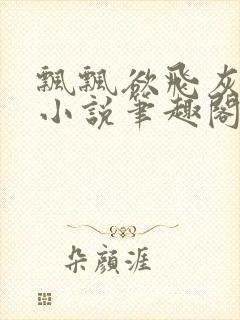 飄飄欲飛灰
小說筆趣閣
朵顏涯